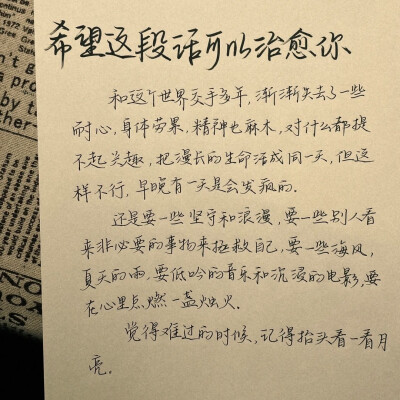 希望这段话可以治愈你
和这个世界交手多年,渐渐失去了一些
耐心,身体劳累,精神也麻木,对什么都提
不起兴趣,把漫长的生命活成同一天,但这
样不行,早晚有一天是会发疯的.
还是要一些坚守和浪漫,要一些别人看
来非必要的事物来拯救自己,要一些海风,
夏天的雨,要低吟的音乐和沉浸的电影,要
在心里点燃一盏烛火.
觉得难过的时候,记得抬头看一看月
亮.